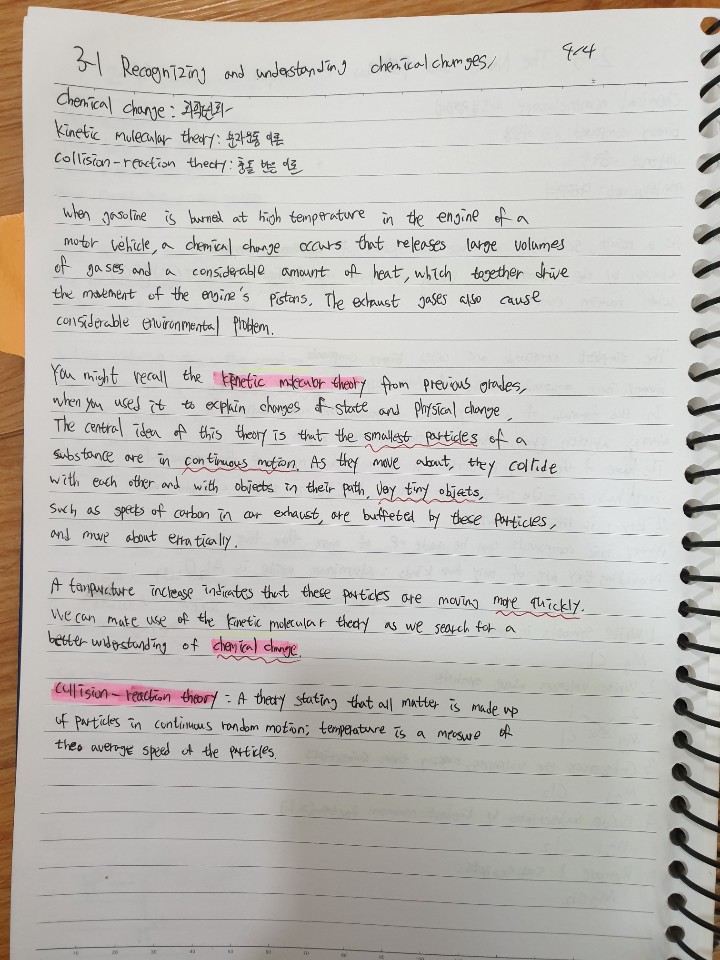 3-1 Recognizing and understanding chemical changes/ 9/4
chemical change : 화학변화
kinetic molecular theory : 분자운동 이론
collision-reaction theory : 충돌 반응 이론
when gasoline is burned at high temperature in the engine of a
motor vehicle, a chemical change occurs that releases large volumes
of gases and a considerable amount of heat, which together drive
the movement of the engine's pistons. The exhaust gases also cause
considerable environmental problem.
You might recall the kinetic molecular theory from previous grades,
when you used it to explain changes of state and physical change.
The central idea of this theory is that the smallest particles of a
substance are in continuous motion. As they move about, they collide
with each other and with objects in their path. Very tiny objects,
such as specks of carbon in car exhaust, are buffeted by these particles,
and move about erratically.
A temperature increase indicates that these particles are moving more quickly.
We can make use of the kinetic molecular theory as we search for a
better understanding of chemical change.
collision-reaction theory : A theory stating that all matter is made up
of particles in continuous random motion; temperature is a measure of
the average speed of the particles.